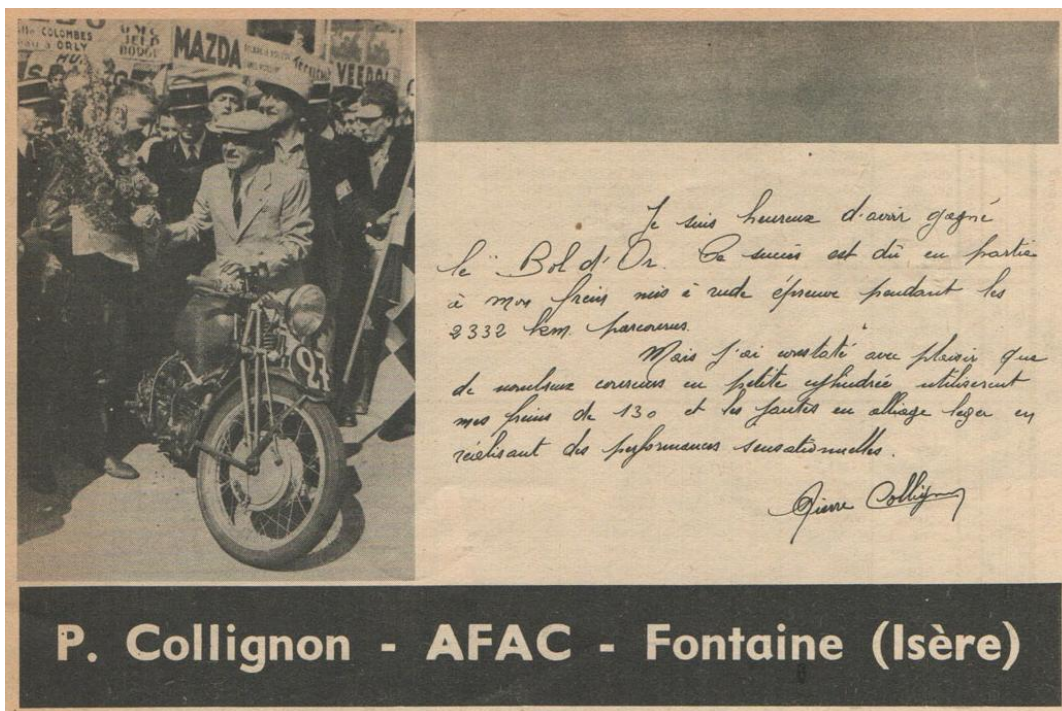 COLOMBES
à ORLY
G.M.C.
JEEP
DODGE
MAZDA
VEEDOL
27
Je suis heureux d'avoir gagné
le "Bol d'Or. Ce succès est dû en partie
à mes freins mis à rude épreuve pendant les
2332 km. parcourus.
Mais j'ai constaté avec plaisir que
de nombreux coureurs en petite cylindrée utilisèrent
mes freins de 130 et les jantes en alliage leger en
réalisant des performances sensationnelles.
Pierre Collignon
P. Collignon - AFAC - Fontaine (Isère)